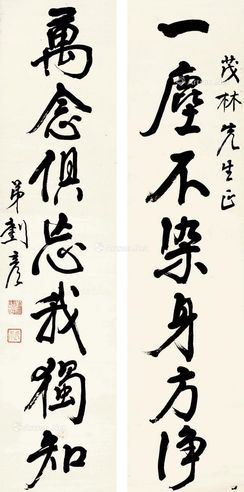 茂林先生正
一塵不染身方淨
萬念俱忘我獨知
弟劉彥